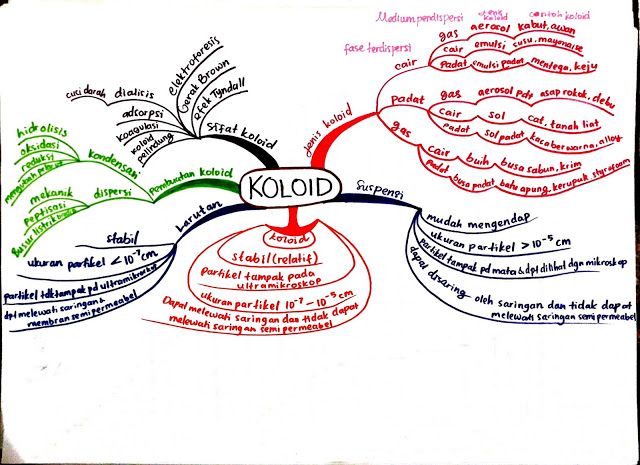 KOLOID
Jenis koloid
fase terdispersi
Medium pendispersi
jenis koloid
contoh koloid
cair
gas aerosol kabut, awan
cair emulsi susu, mayonaise
Padat emulsi padat mentega, keju
Padat
gas aerosol pdt asap rokok, debu
cair sol cat, tanah liat
padat sol padat kaca berwarna, alloy
gas
cair buih busa sabun, krim
Padat busa padat, batu apung, kerupuk styrofoam
Suspensi
mudah mengendap
ukuran partikel > 10⁻⁵ cm
partikel tampak pd mata & dpt dilihat dgn mikroskop
dapat disaring oleh saringan dan tidak dapat
melewati saringan semipermeabel
koloid
stabil (relatif)
Partikel tampak pada
ultramikroskop
ukuran partikel 10⁻⁷ – 10⁻⁵ cm
Dapat melewati saringan dan tidak dapat
melewati saringan semi permeabel
Larutan
stabil
ukuran partikel < 10⁻⁷ cm
partikel tdk tampak pd ultramikroskop
dpt melewati saringan &
membran semipermeabel
Pembuatan koloid
kondensasi
hidrolisis
oksidasi
reduksi
dispersi
mekanik
Peptisasi
Busur listrik
Sifat koloid
Elektroforesis
Gerak Brown
efek Tyndall
dialisis
cuci darah
adsorpsi
koagulasi
koloid
pelindung